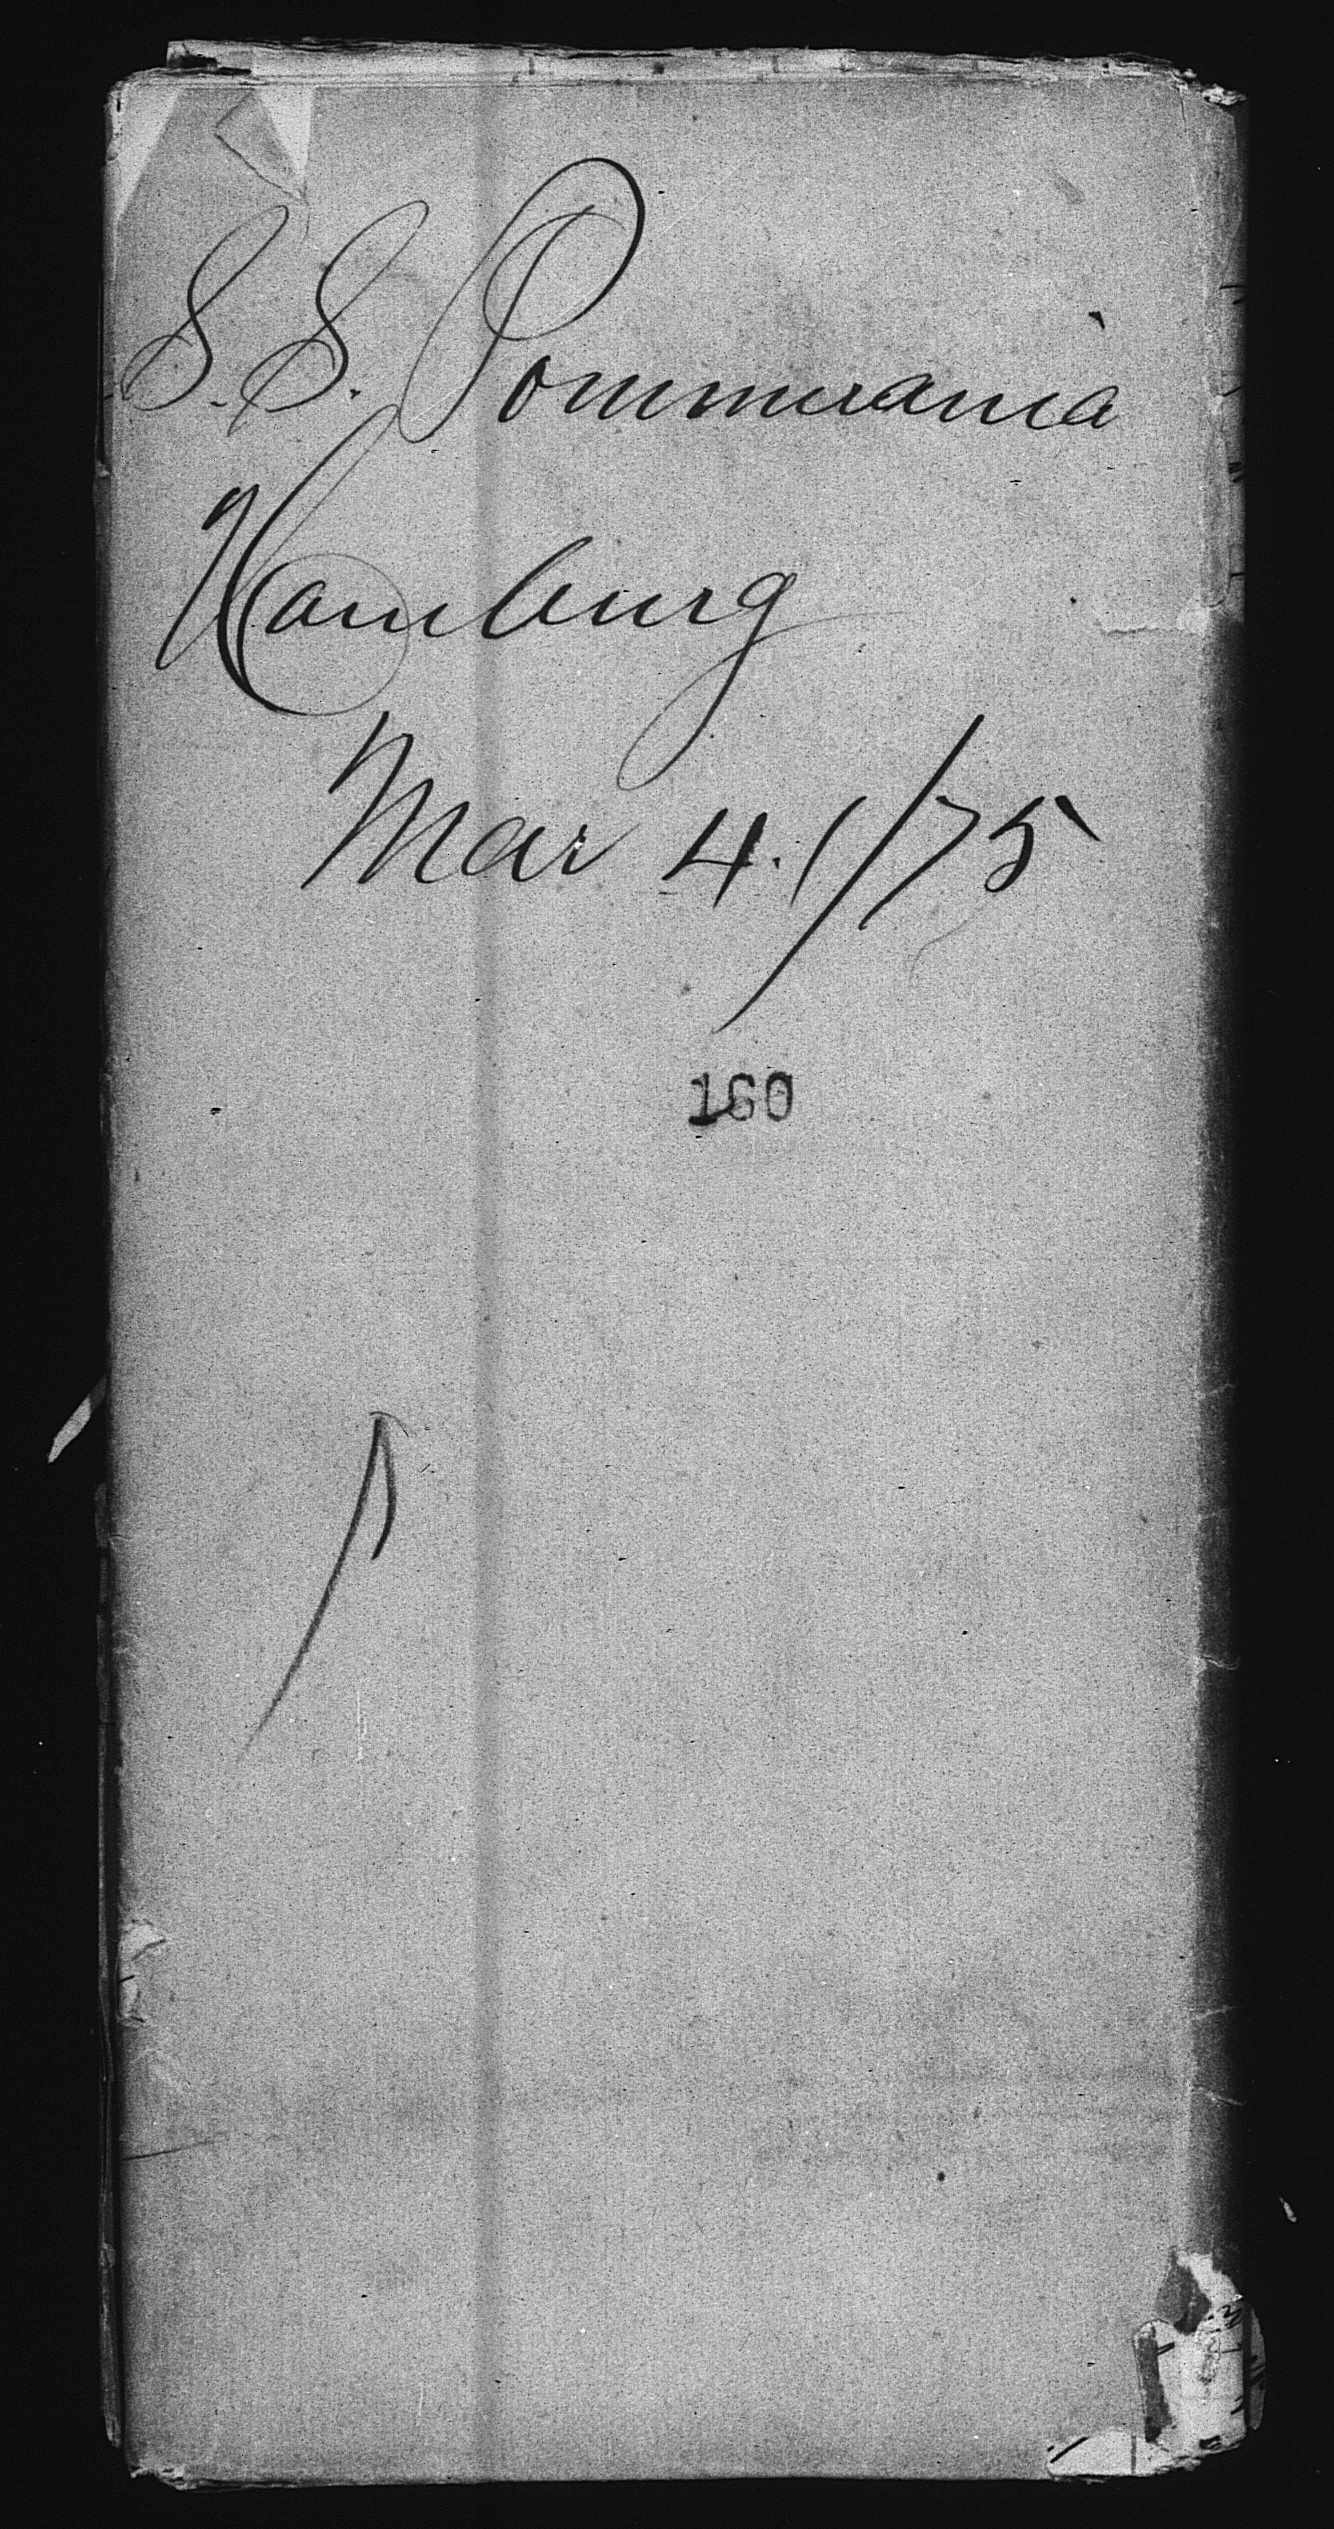 S. S. Pommerania
Hamburg
Mar 4. /75
160